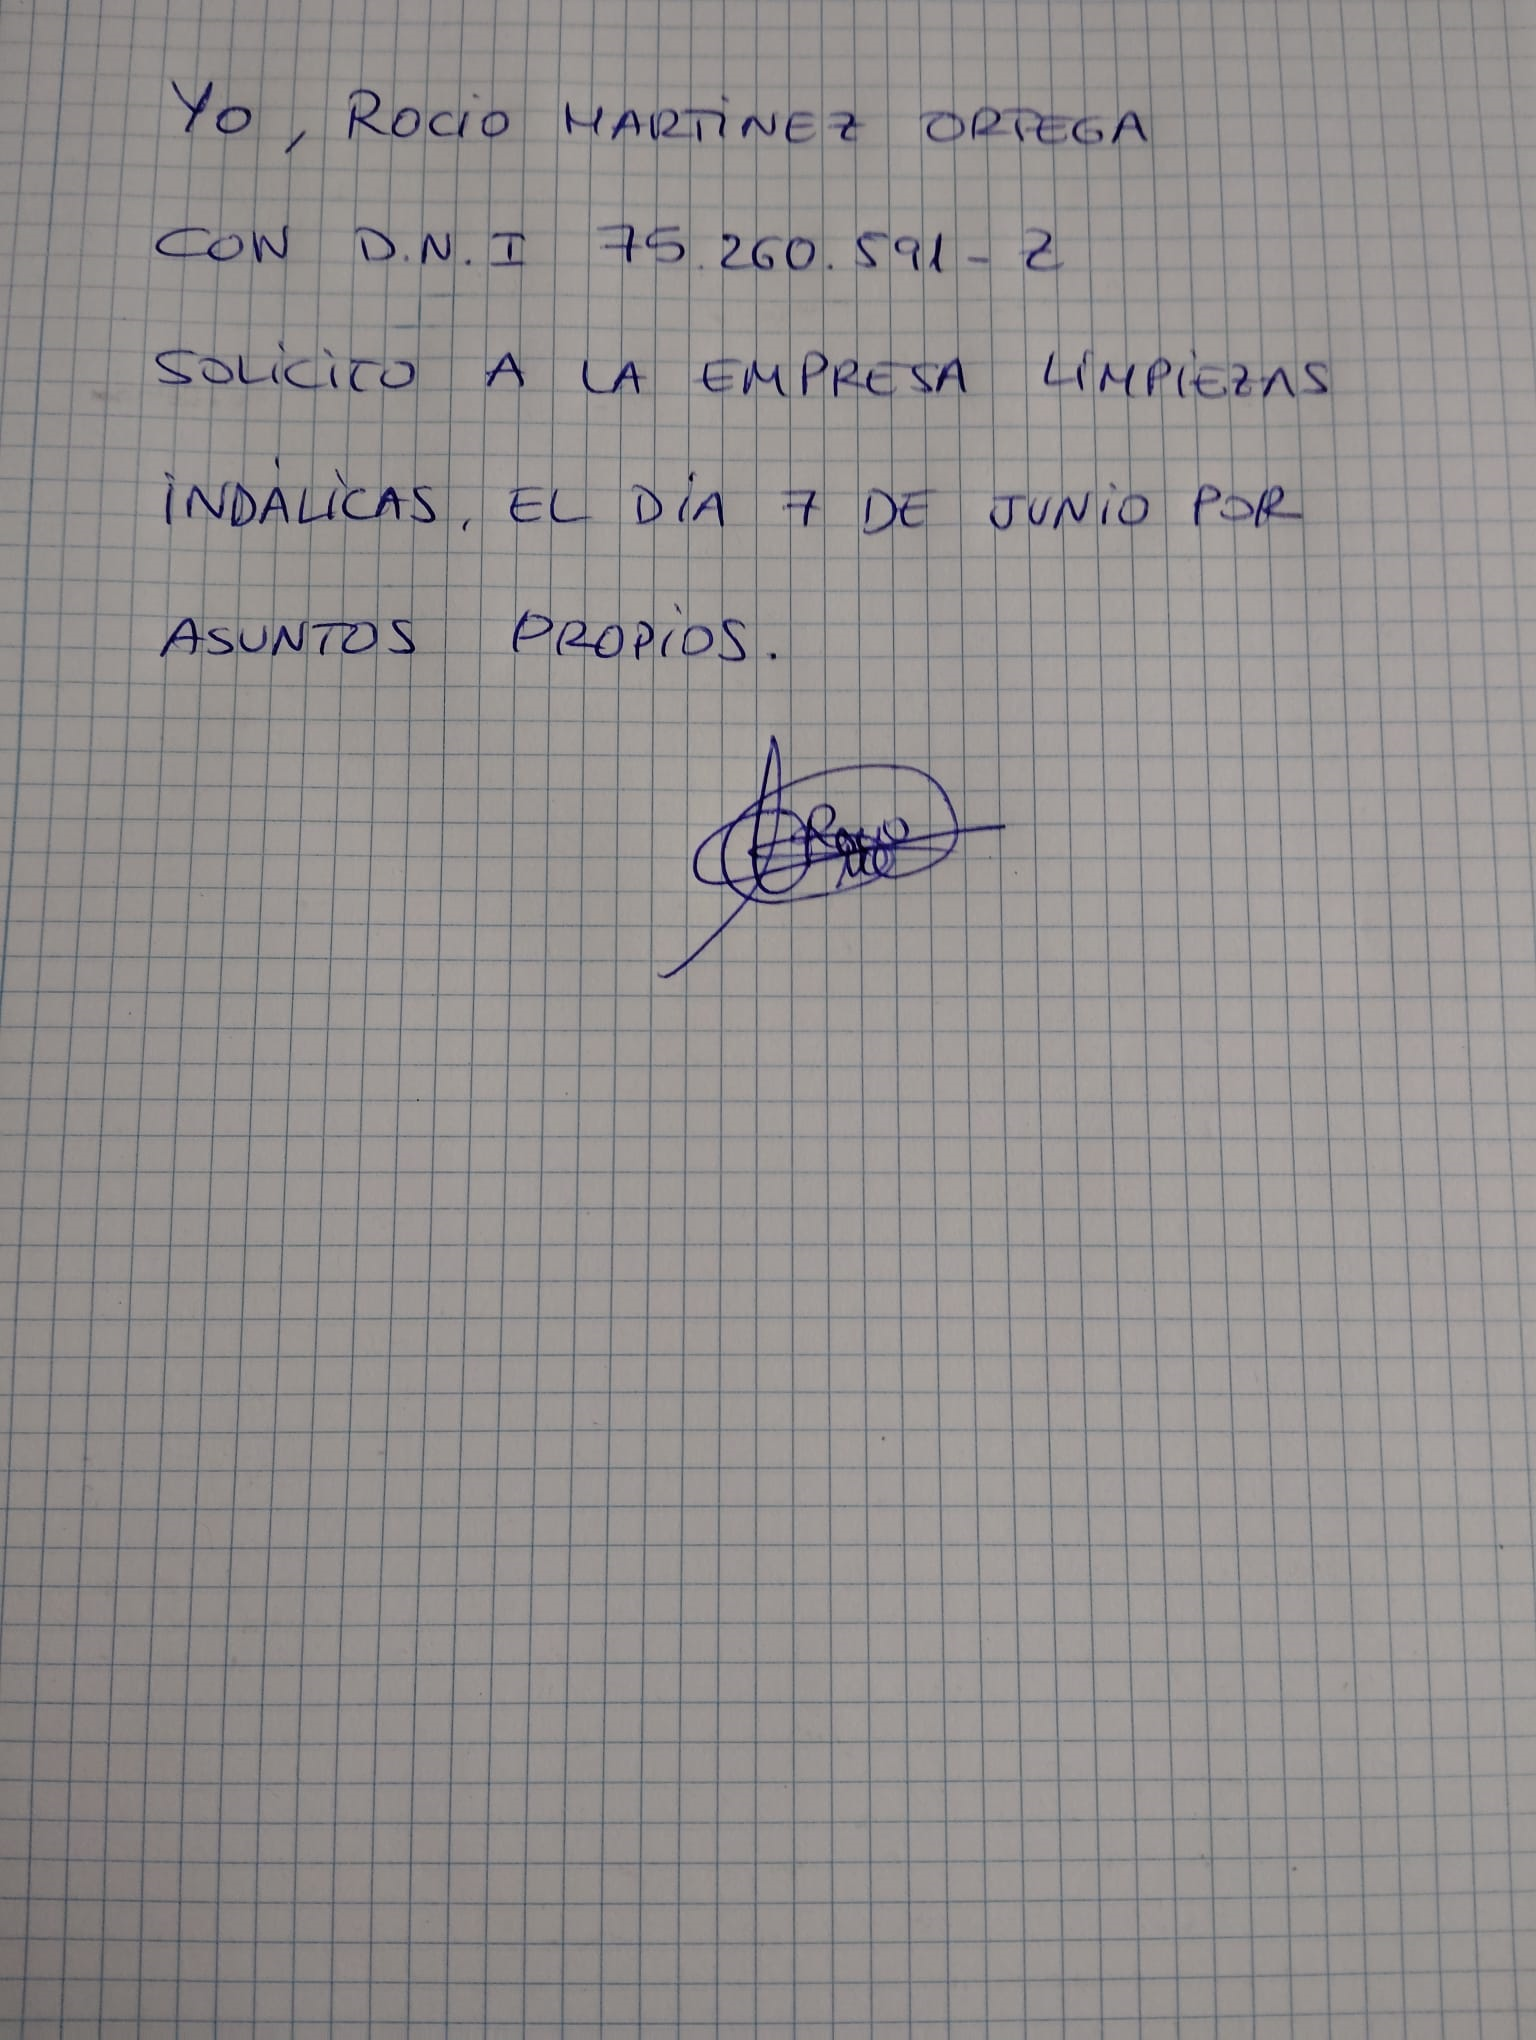 Yo, Rocio MARTINEZ ORTEGA
CON D.N.I 75.260.591-Z
SOLICITO A LA EMPRESA LIMPIEZAS
INDÁLICAS, EL DÍA 7 DE JUNIO POR
ASUNTOS PROPIOS.
Rocio